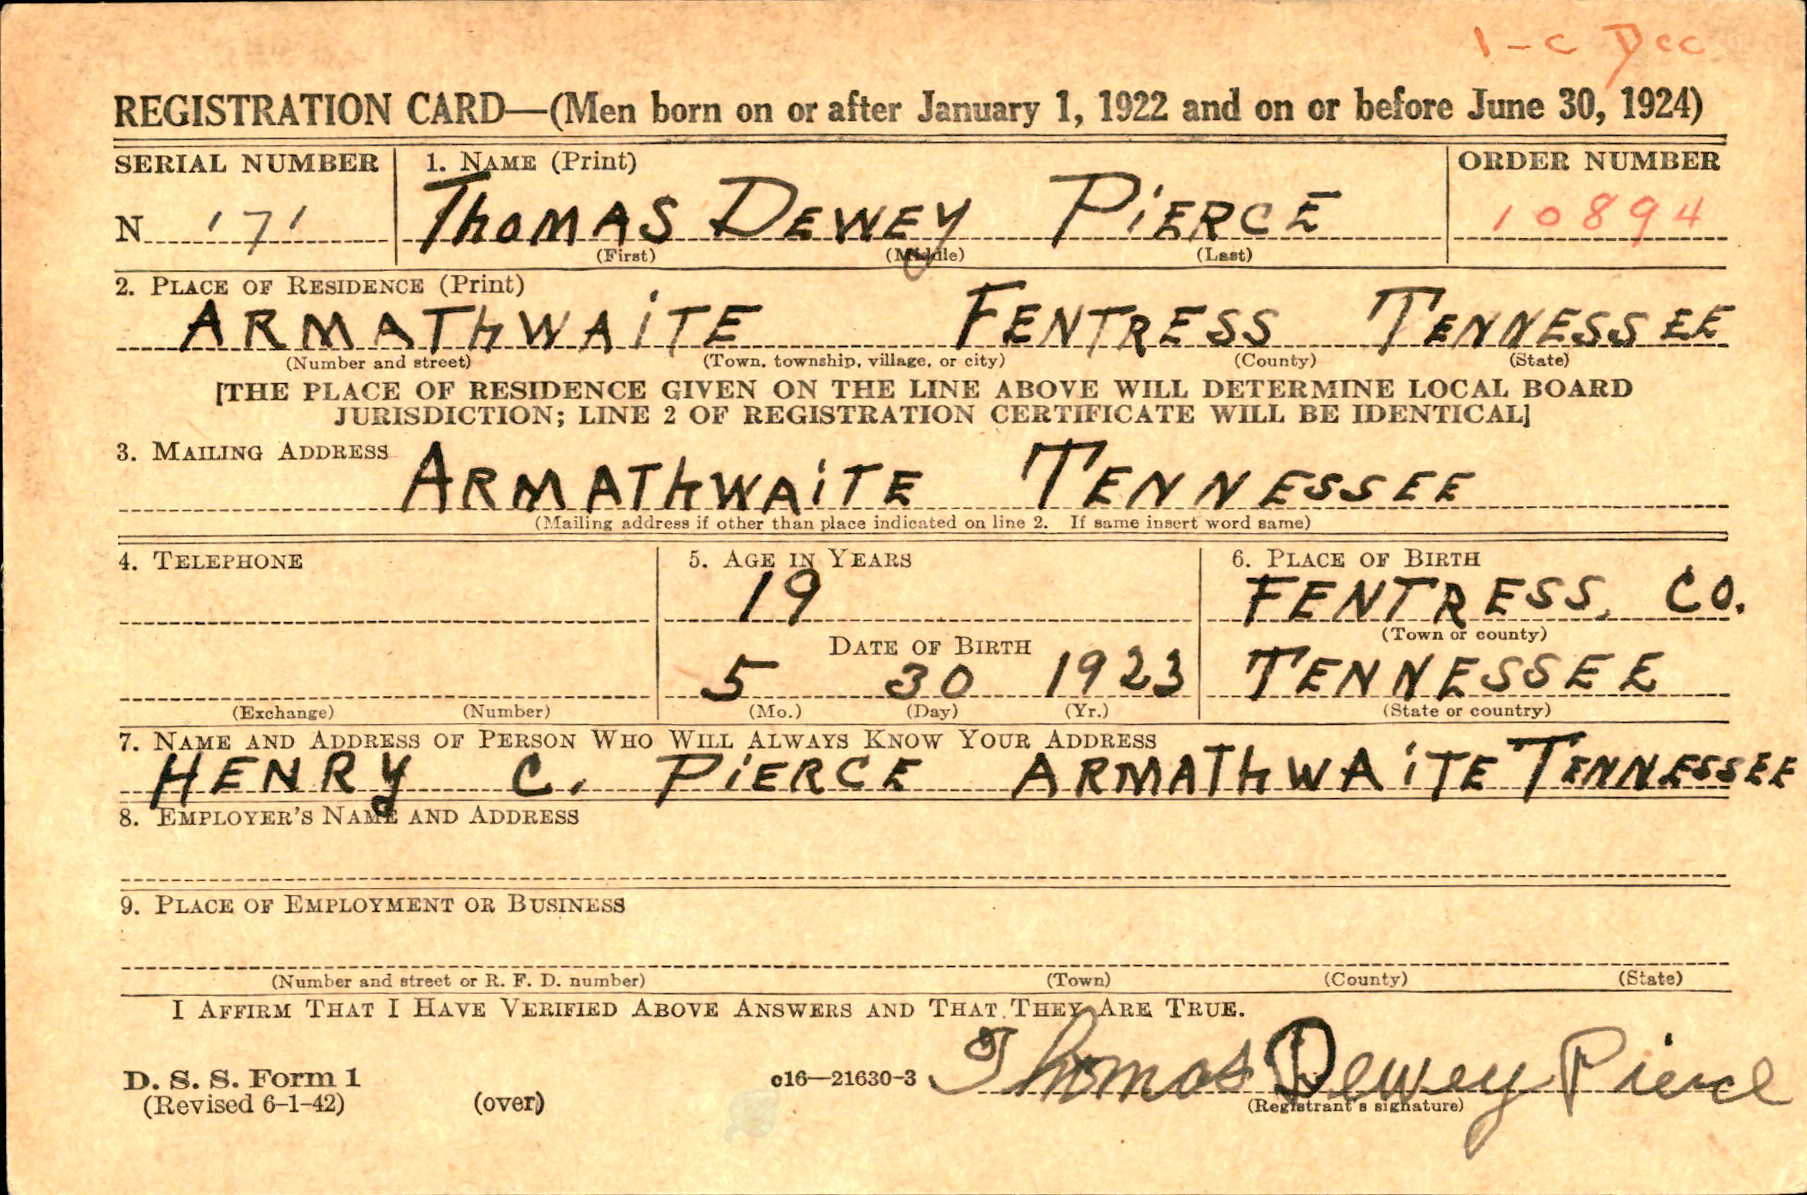 1-C Dec
REGISTRATION CARD—(Men born on or after January 1, 1922 and on or before June 30, 1924)
SERIAL NUMBER 1. NAME (Print) ORDER NUMBER
N 171 THOMAS DEWEY PIERCE 10894
(First) (Middle) (Last)
2. PLACE OF RESIDENCE (Print)
ARMATHWAITE FENTRESS TENNESSEE
(Number and street) (Town, township, village, or city) (County) (State)
[THE PLACE OF RESIDENCE GIVEN ON THE LINE ABOVE WILL DETERMINE LOCAL BOARD
JURISDICTION; LINE 2 OF REGISTRATION CERTIFICATE WILL BE IDENTICAL]
3. MAILING ADDRESS
ARMATHWAITE TENNESSEE
(Mailing address if other than place indicated on line 2. If same insert word same)
4. TELEPHONE 5. AGE IN YEARS 6. PLACE OF BIRTH
19 FENTRESS, CO.
(Town or county)
DATE OF BIRTH
5 30 1923 TENNESSEE
(Exchange) (Number) (Mo.) (Day) (Yr.) (State or country)
7. NAME AND ADDRESS OF PERSON WHO WILL ALWAYS KNOW YOUR ADDRESS
HENRY C. PIERCE ARMATHWAITE TENNESSEE
8. EMPLOYER'S NAME AND ADDRESS
9. PLACE OF EMPLOYMENT OR BUSINESS
(Number and street or R. F. D. number) (Town) (County) (State)
I AFFIRM THAT I HAVE VERIFIED ABOVE ANSWERS AND THAT THEY ARE TRUE.
D. S. S. Form 1 c16—21630-3 Thomas Dewey Pierce
(Revised 6-1-42) (over) (Registrant's signature)